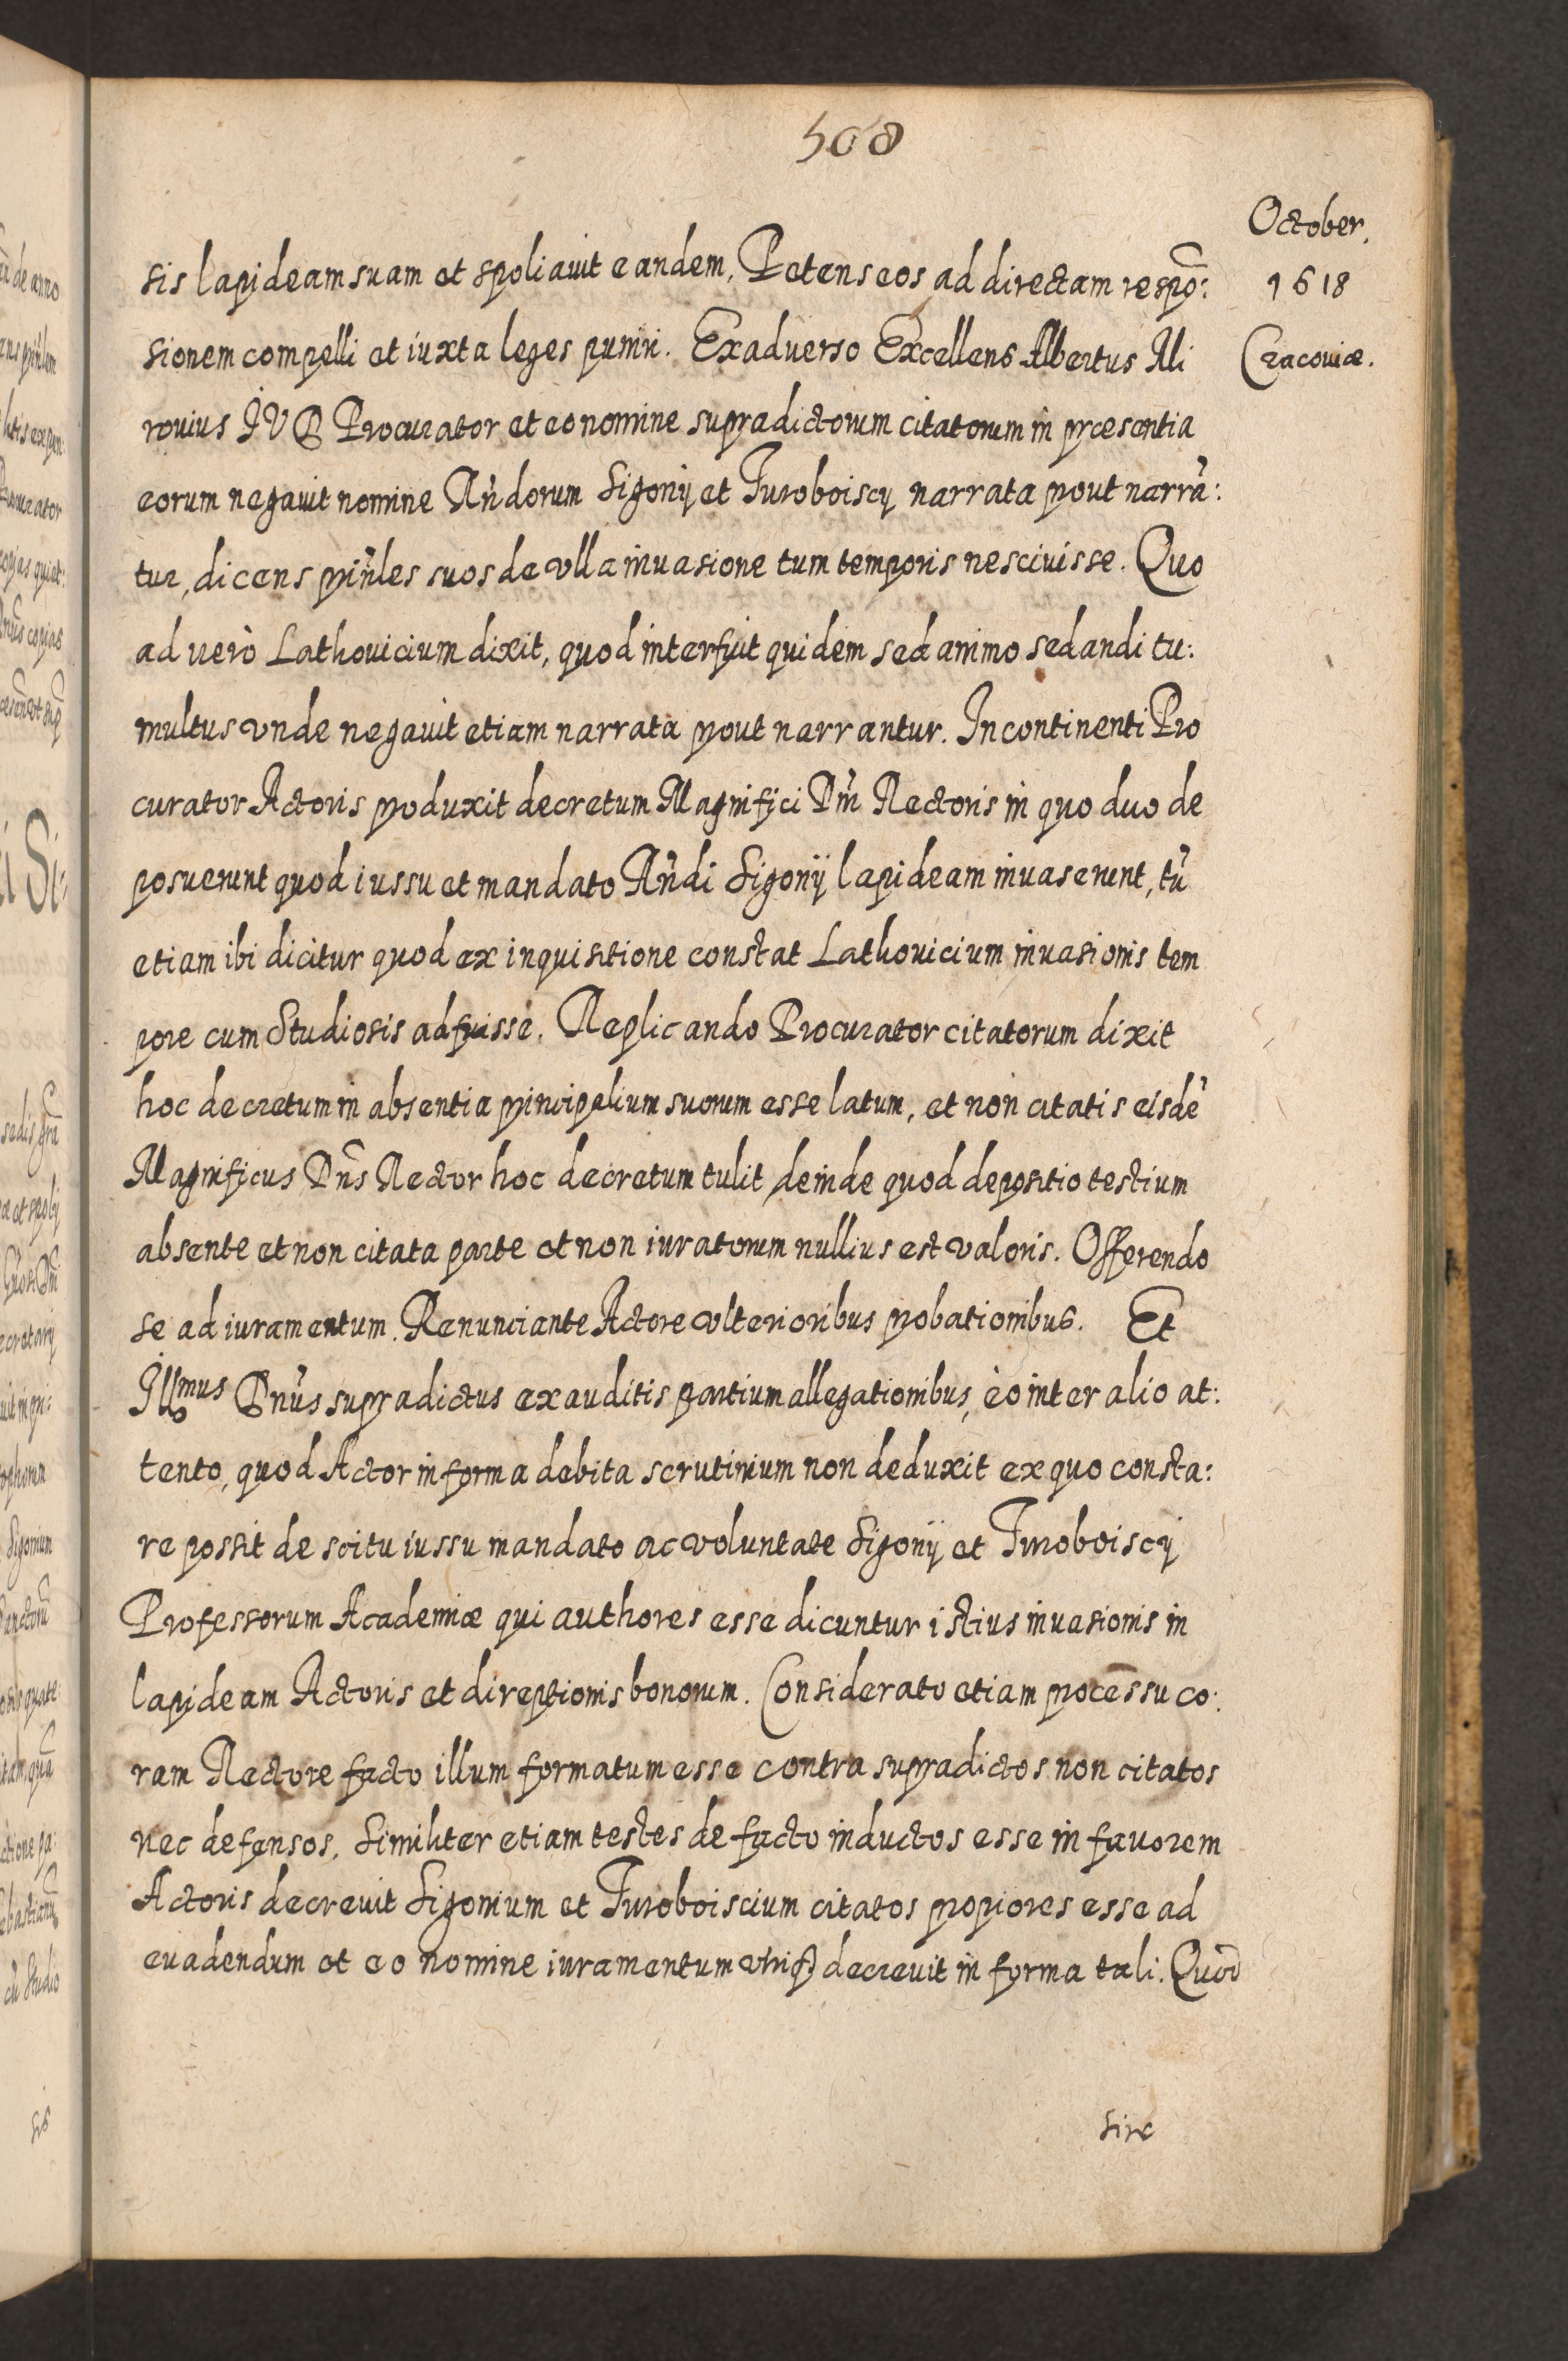 508
October.
1618
Cracoviæ.
sis lapideam suam et spoliavit eandem, Petens eos ad directam respō:
sionem compelli et iuxta leges puniri. Exadverso Excellens Albertus Ali
rovius JVD Procurator et eo nomine supradictorum citatorum in præsentia
eorum negavit nomine Añdorum Sigonij et Turoboiscij narrata prout narrā:
tur, dicens priñles suos de vlla invasione tum temporis nescivisse. Quo
ad vero Lathovicium dixit, quod interfuit quidem sed animo sedandi tu:
multus vnde negavit etiam narrata prout narrantur. In continenti Pro
curator Actoris produxit decretum Magnifici Dñi Rectoris in quo duo de
posuerunt quod iussu et mandato Añdi Sigonij lapideam invaserunt, tū
etiam ibi dicitur quod ex inquisitione constat Lathovicium invasionis tem
pore cum Studiosis adfuisse. Replicando Procurator citatorum dixit
hoc decretum in absentia principalium suorum esse latum, et non citatis eisdē
Magnificus Dñs Rector hoc decretum tulit, deinde quod depositio testium
absente et non citata parte et non iuratorum nullius est valoris. Offerendo
se ad iuramentum. Renunciante Actore vlterioribus probationibus. Et
Illmus Dnūs supradictus exauditis partium allegationibus, eo inter alio at:
tento, quod Actor in forma debita scrutinium non deduxit ex quo consta:
re possit de scitu iussu mandato ac voluntate Sigonij et Turoboiscij
Professorum Academiæ qui authores esse dicuntur istius invasionis in
lapideam Actoris et direptionis bonorum. Considerato etiam processu co:
ram Rectore facto illum formatum esse contra supradictos non citatos
nec defensos, Similiter etiam testes de facto inductos esse in favorem
Actoris decrevit Sigonium et Turoboiscium citatos propiores esse ad
evadendum et eo nomine iuramentum decrevit in forma tali. Quod